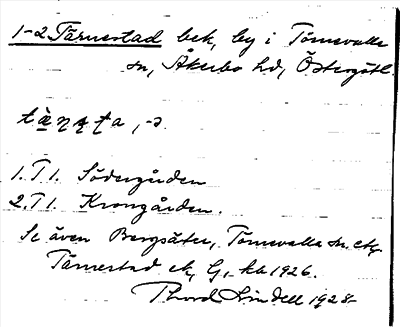 1-2 Tärnestad bek, by i Törnevalla
sn, Åkerbo hd, Östergötl.
1. T 1. Södergården
2. T 1. Krongården.
Se även Bergsäter, Törnevalla sn. etc,
Tärnestad ek, G, kb 1926.
Thord Lindell 1928